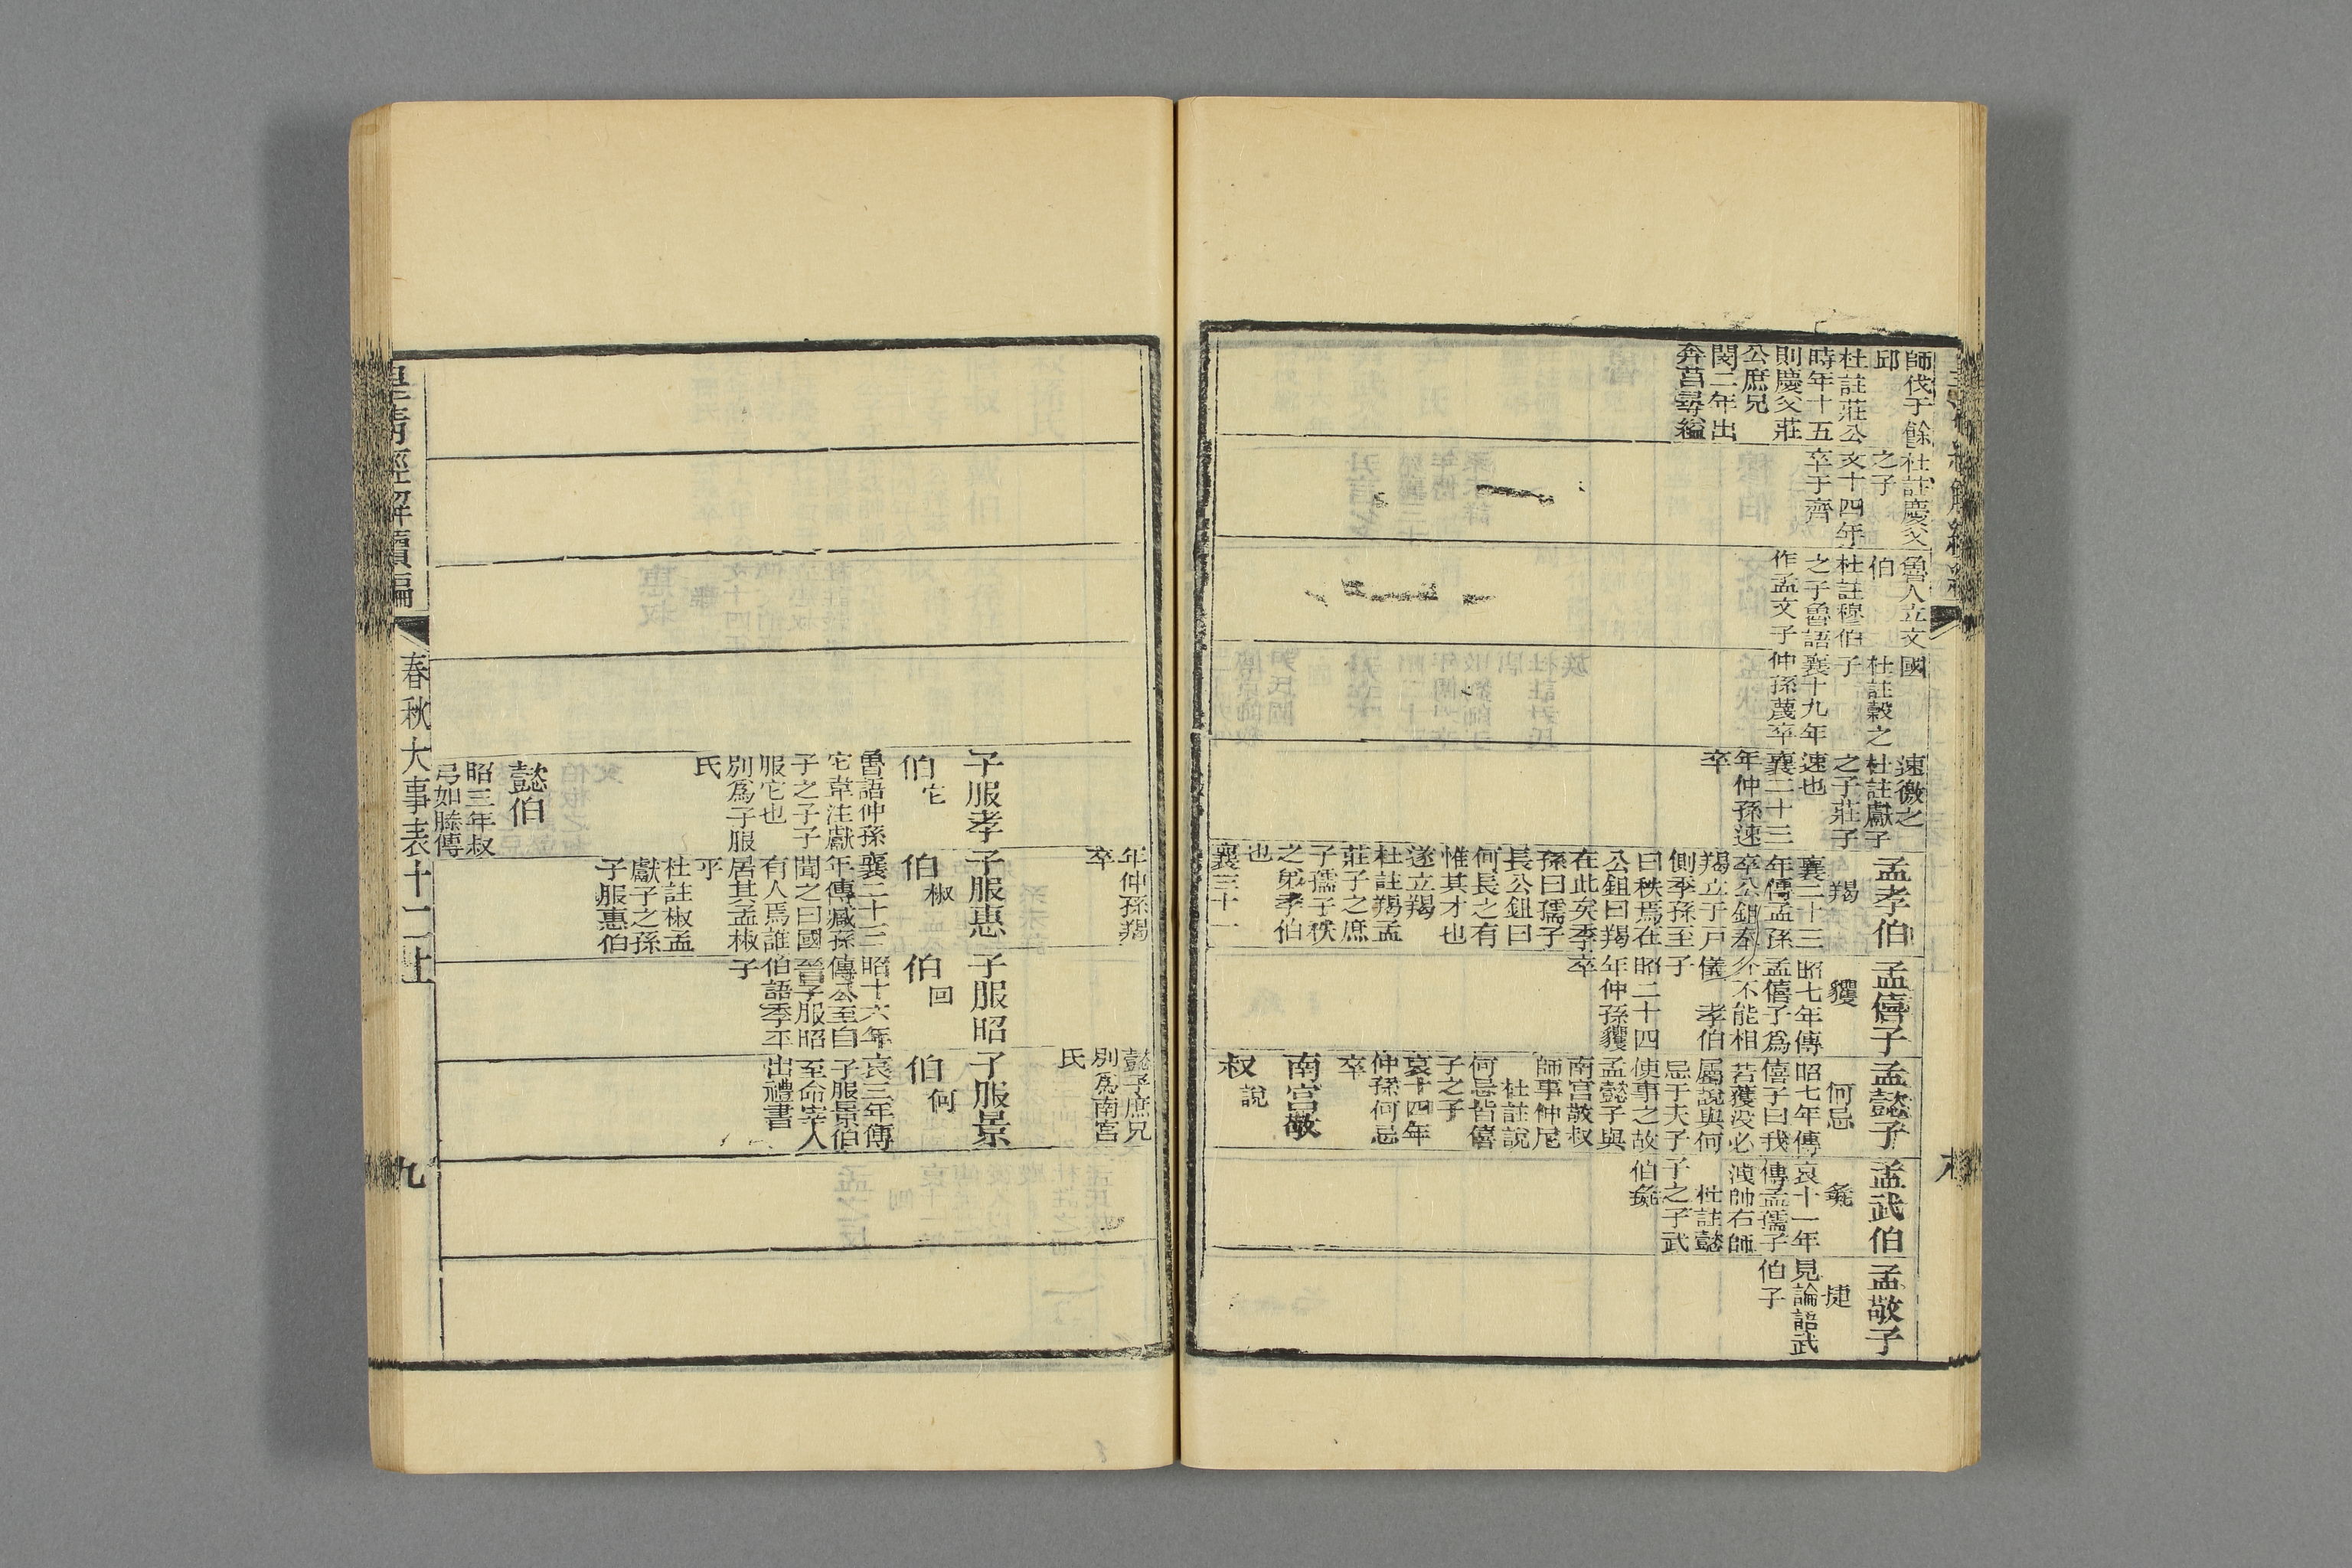 師伐于餘
邱
杜註莊公
時年十五
則慶父莊
公庶兄
閔二年出
奔莒尋縊
杜註慶父
之子
文十四年
卒于齊
魯人立文
伯
杜註穆伯
之子魯語
作孟文子
國
杜註穀之
子
襄十九年
仲孫蔑卒
速徼之
杜註獻子
之子莊子
速也
襄二十三
年仲孫速
卒
孟孝伯
羯
襄二十三
年傳孟孫
卒公鉏奉
羯立于戶
側季孫至
曰秩焉在
公鉏曰羯
在此矣季
孫曰孺子
長公鉏曰
何長之有
惟其才也
遂立羯
杜註羯孟
莊子之庶
子孺子秩
之弟孝伯
也
襄三十一
孟僖子
貜
昭七年傳
孟僖子爲
介不能相
儀　孝伯
子
昭二十四
年仲孫貜
卒
孟懿子
何忌
昭七年傳
僖子曰我
若獲没必
屬說與何
忌于夫子
使事之故
孟懿子與
南宮敬叔
師事仲尼
杜註說
何忌皆僖
子之子
哀十四年
仲孫何忌
卒
南宮敬
叔說
孟武伯
彘
哀十一年
傳孟孺子
洩帥右師
杜註懿
子之子武
伯彘
孟敬子
捷
見論語武
伯子
子服孝
伯它
魯語仲孫
它韋注獻
子之子子
服它也
別爲子服
氏
懿伯
昭三年叔
弓如滕傳
年仲孫羯
卒
子服惠
伯椒
襄二十三
年傳臧孫
聞之曰國
有人焉誰
居其孟椒
乎
杜註椒孟
獻子之孫
子服惠伯
子服昭
伯回
昭十六年
傳公至自
晉子服昭
伯語季平
子
懿子庶兄
別爲南宮
氏
子服景
伯何
哀三年傳
子服景伯
至命宰人
出禮書
皇清經解續編
春秋大事表十二上
九